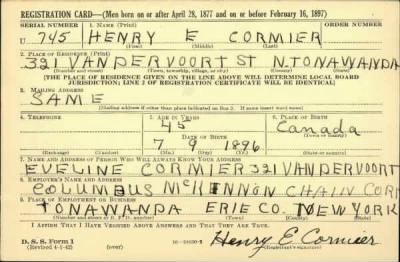 REGISTRATION CARD—(Men born on or after April 28, 1877 and on or before February 16, 1897)
SERIAL NUMBER 1. NAME (Print)
U 745 HENRY E CORMIER
(First) (Middle) (Last)
2. PLACE OF RESIDENCE (Print)
321 VANDERVOORT ST N.TONAWANDA
(Number and street) (Town, township, village, or city) (County) (State)
[THE PLACE OF RESIDENCE GIVEN ON THE LINE ABOVE WILL DETERMINE LOCAL BOARD
JURISDICTION; LINE 2 OF REGISTRATION CERTIFICATE WILL BE IDENTICAL]
3. MAILING ADDRESS
SAME
[Mailing address if other than place indicated on line 2. If same insert word same]
4. TELEPHONE 5. AGE IN YEARS 6. PLACE OF BIRTH
45 Canada
DATE OF BIRTH (Town or county)
7 9 1896
(Exchange) (Number) (Mo.) (Day) (Yr.) (State or country)
7. NAME AND ADDRESS OF PERSON WHO WILL ALWAYS KNOW YOUR ADDRESS
EVELINE CORMIER 321 VANDERVOORT
8. EMPLOYER'S NAME AND ADDRESS
COLUMBUS McKINNON CHAIN CORP
9. PLACE OF EMPLOYMENT OR BUSINESS
TONAWANDA ERIE CO. NEW YORK
(Number and street or R. F. D. number) (Town) (County) (State)
I AFFIRM THAT I HAVE VERIFIED ABOVE ANSWERS AND THAT THEY ARE TRUE.
D. S. S. Form 1
(Revised 4-1-42) (over) Henry E. Cormier